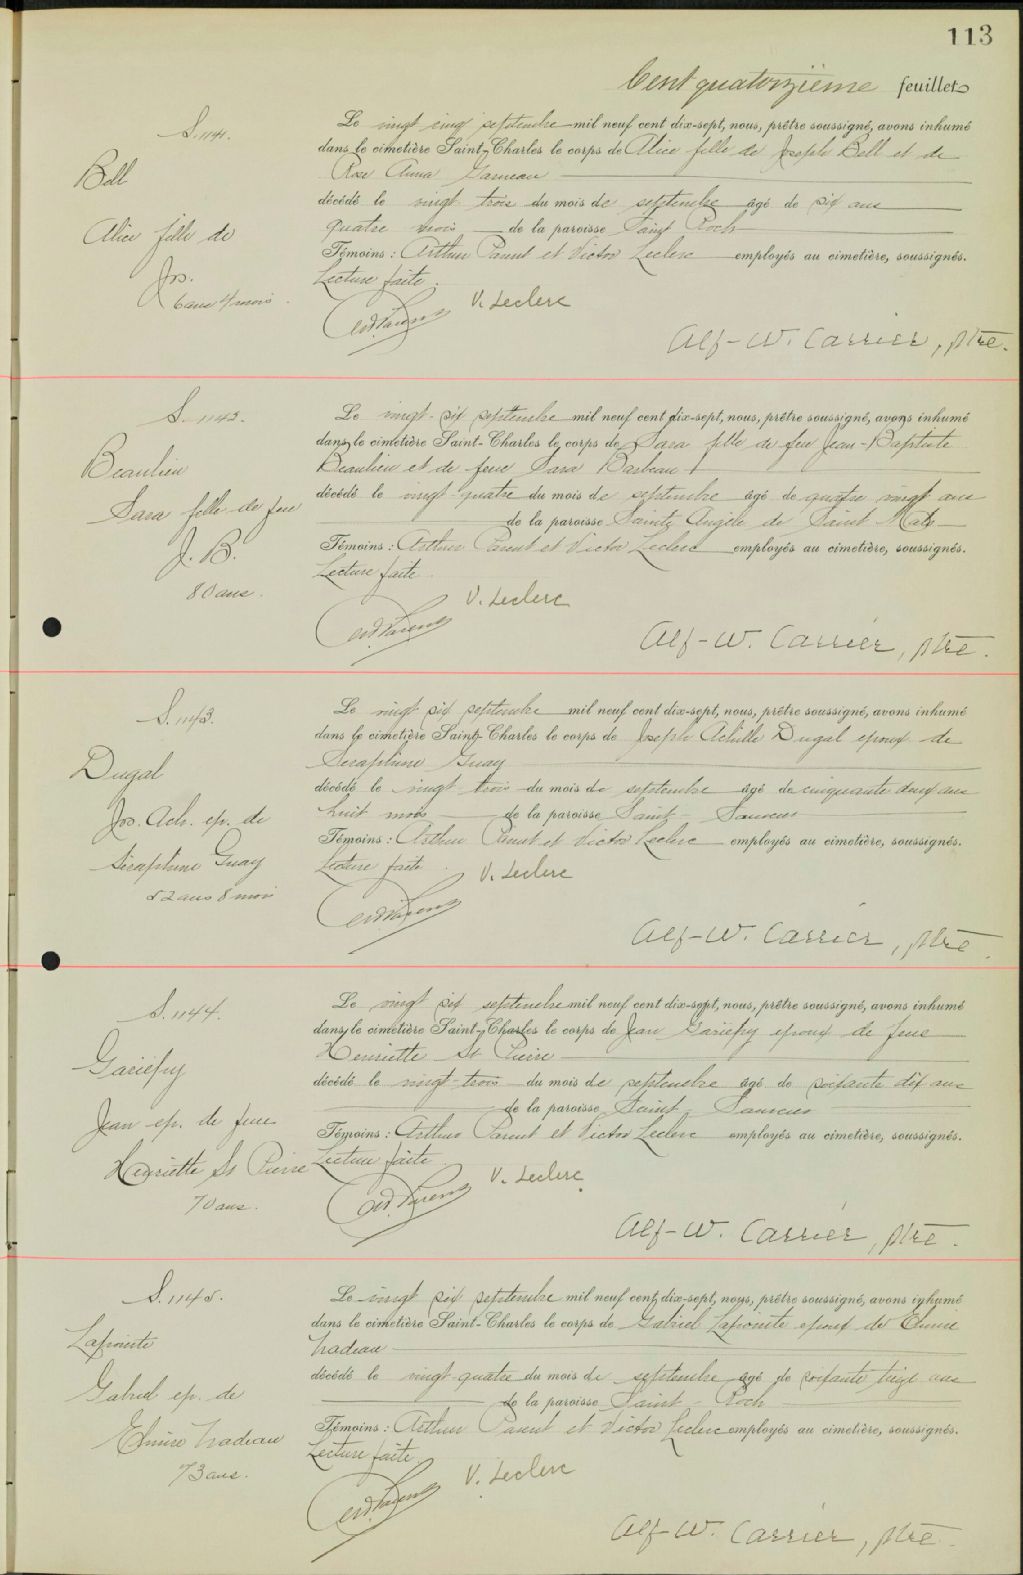 113
Cent quatorzième feuillet
S. 1141.
Bell
Alice fille de
Jos.
6 ans 4 mois.
Le vingt cinq septembre mil neuf cent dix-sept, nous, prêtre soussigné, avons inhumé
dans le cimetière Saint-Charles le corps de Alice fille de Joseph Bell et de
Rose Anna Garneau
décédé le vingt trois du mois de septembre âgé de six ans
quatre mois de la paroisse Saint Roch
Témoins : Arthur Parent et Victor Leclerc employés au cimetière, soussignés.
Lecture faite.
V. Leclerc
Alf-W. Carrier, ptre.
S. 1142.
Beaulieu
Sara fille de feu
J. B.
80 ans.
Le vingt-six septembre mil neuf cent dix-sept, nous, prêtre soussigné, avons inhumé
dans le cimetière Saint-Charles le corps de Sara fille de feu Jean-Baptiste
Beaulieu et de feue Sara Barbeau
décédé le vingt-quatre du mois de septembre âgé de quatre vingt ans
de la paroisse Sainte Angèle de Saint Malo
Témoins : Arthur Parent et Victor Leclerc employés au cimetière, soussignés.
Lecture faite
V. Leclerc
Alf-W. Carrier, ptre.
S. 1143.
Dugal
Jos. Ach. ep. de
Séraphine Guay
52 ans 8 mois
Le vingt six septembre mil neuf cent dix-sept, nous, prêtre soussigné, avons inhumé
dans le cimetière Saint-Charles le corps de Joseph Achille Dugal epoux de
Seraphine Guay
décédé le vingt trois du mois de septembre âgé de cinquante deux ans
huit mois de la paroisse Saint-Sauveur
Témoins : Arthur Parent et Victor Leclerc employés au cimetière, soussignés.
Lecture faite.
V. Leclerc
Alf-W. Carrier, ptre.
S. 1144.
Gariépy
Jean ep. de feue
Henriette St Pierre
70 ans.
Le vingt six septembre mil neuf cent dix-sept, nous, prêtre soussigné, avons inhumé
dans le cimetière Saint-Charles le corps de Jean Gariépy epoux de feue
Henriette St Pierre
décédé le vingt-trois du mois de septembre âgé de soixante dix ans
de la paroisse Saint-Sauveur
Témoins : Arthur Parent et Victor Leclerc employés au cimetière, soussignés.
Lecture faite
V. Leclerc
Alf-W. Carrier, ptre.
S. 1145.
Lapointe
Gabriel ep. de
Elmire Nadeau
73 ans.
Le vingt six septembre mil neuf cent dix-sept, nous, prêtre soussigné, avons inhumé
dans le cimetière Saint-Charles le corps de Gabriel Lapointe epoux de Elmire
Nadeau
décédé le vingt-quatre du mois de septembre âgé de soixante treize ans
de la paroisse Saint-Roch
Témoins : Arthur Parent et Victor Leclerc employés au cimetière, soussignés.
Lecture faite
V. Leclerc
Alf-W. Carrier, ptre.